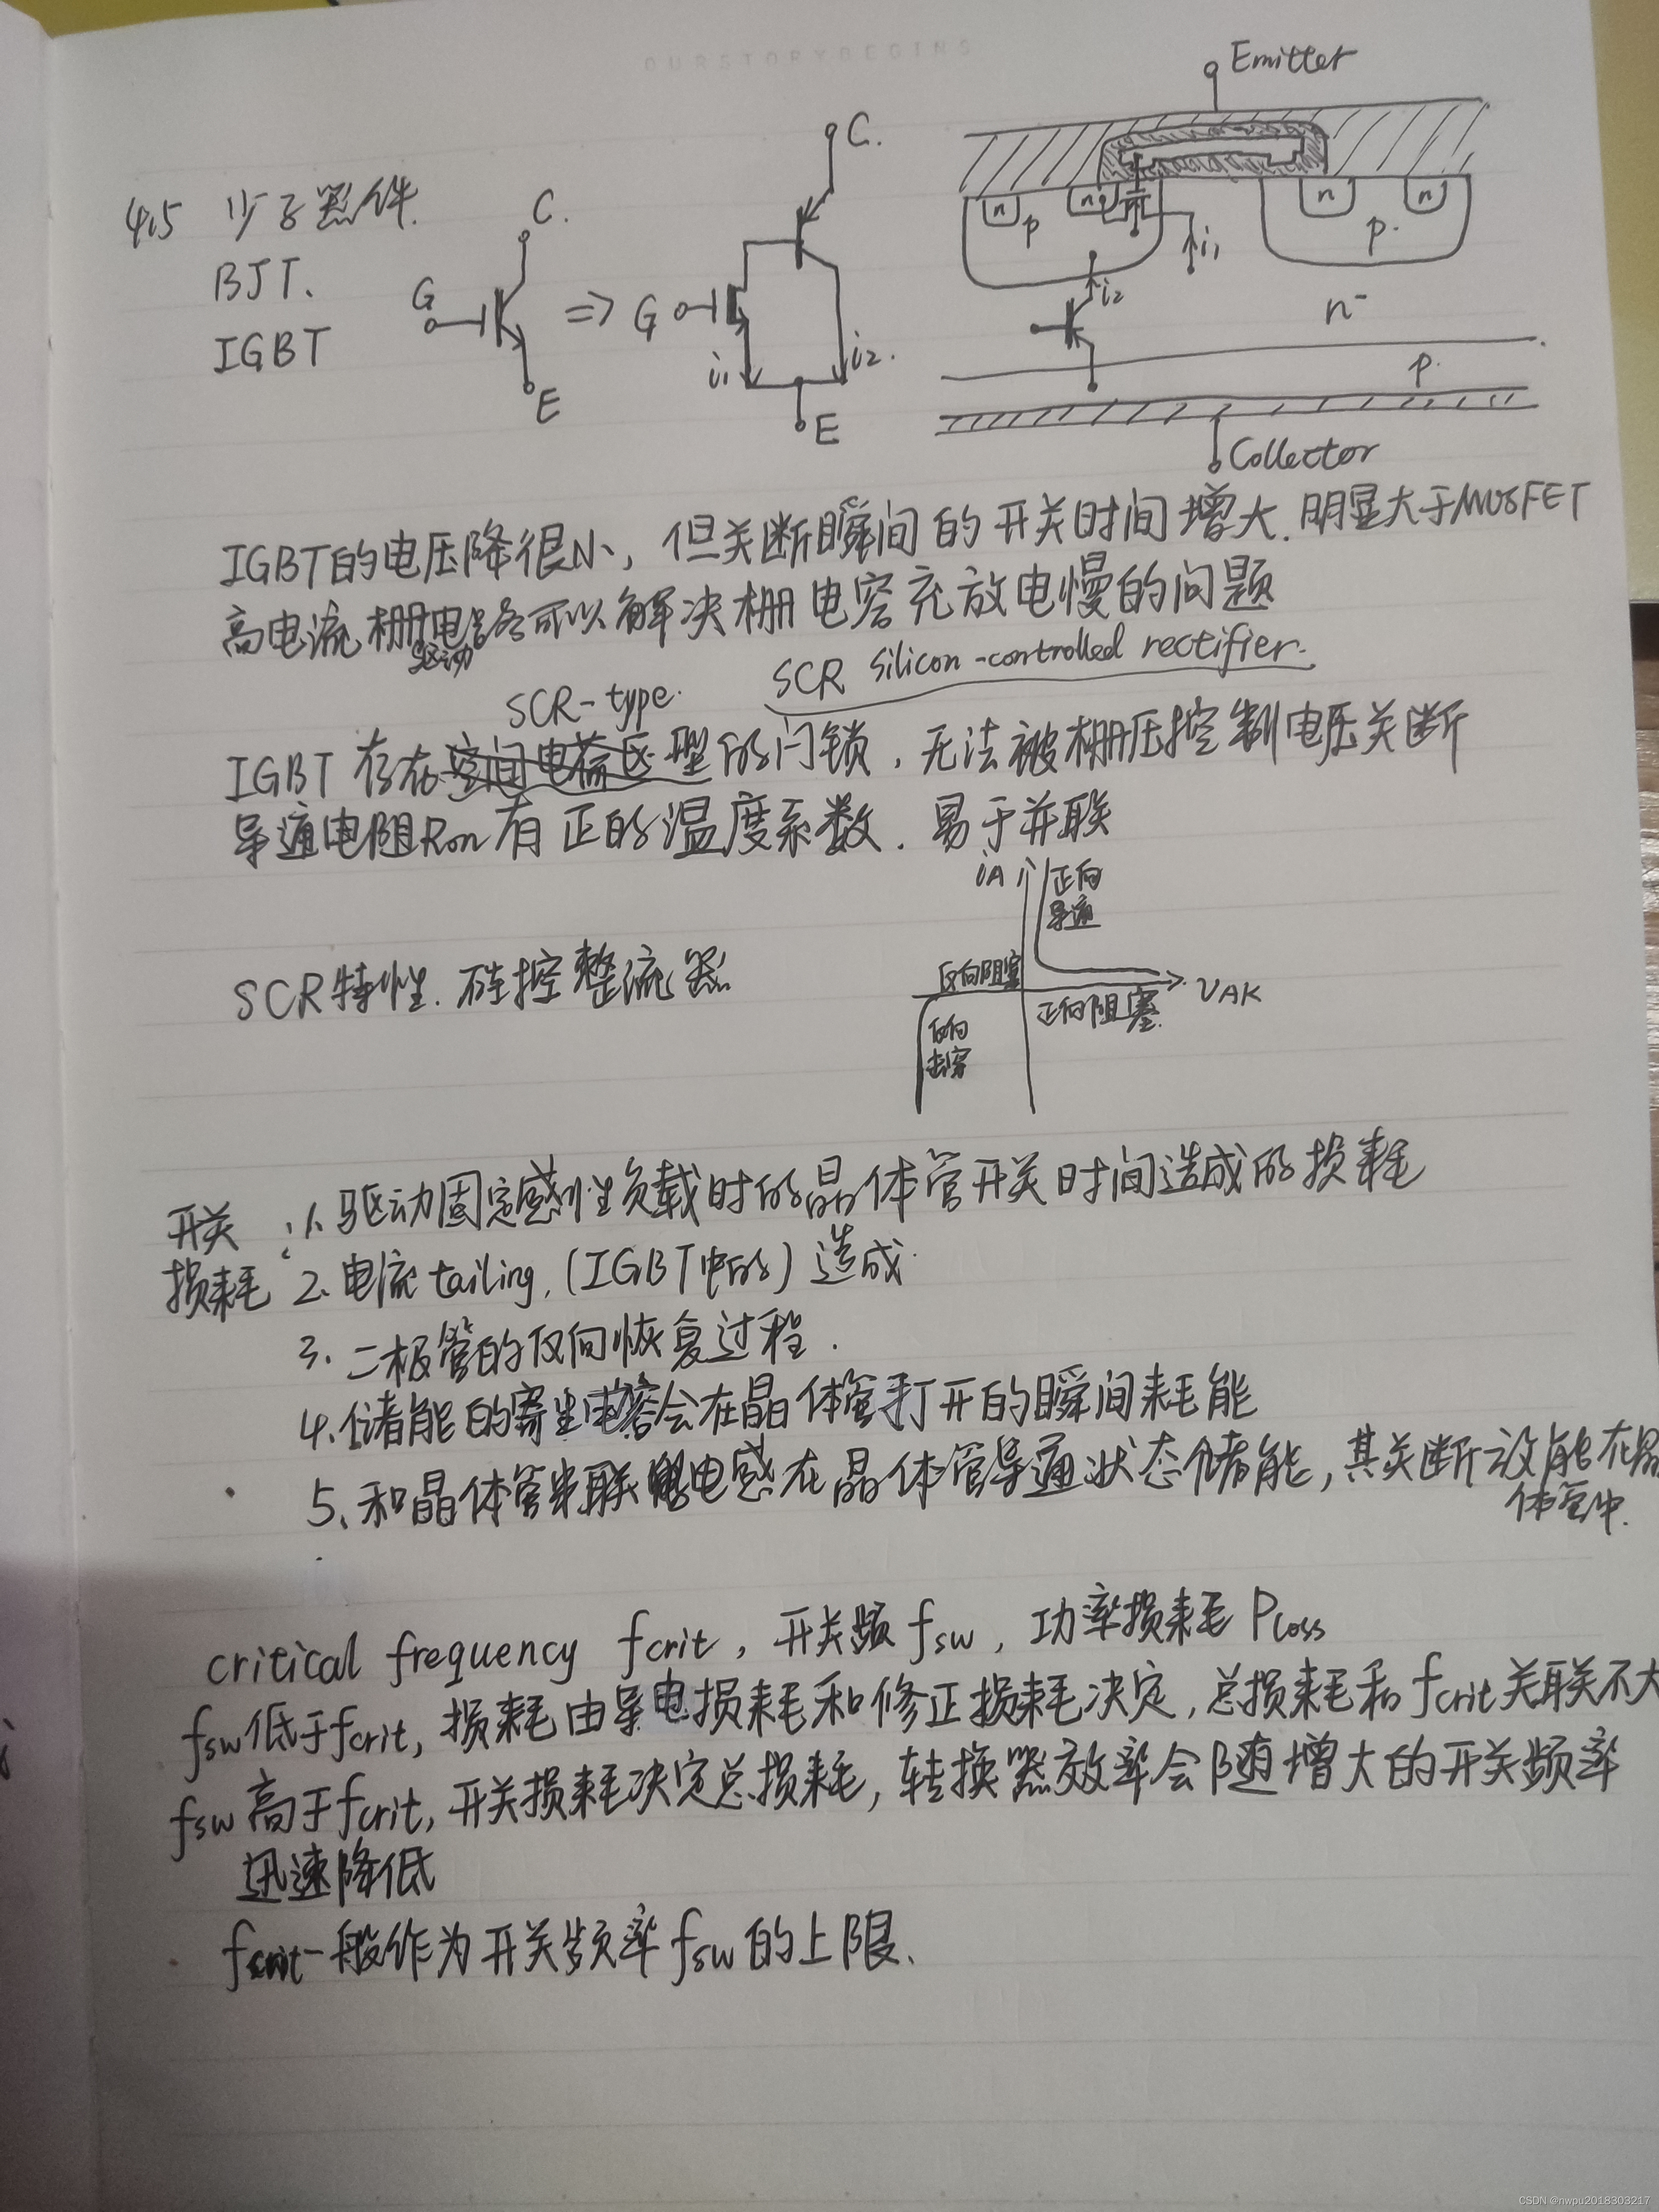 OURSTORYBEGINS
Emitter
C.
4.5 少子器件.
BJT、
IGBT
C.
G
E
=> G
i₁
i₂.
E
n
n
p
i₁
i₂
n
n
p.
n⁻
p.
Collector
IGBT的电压降很小,但关断瞬间的开关时间增大.明显大于MOSFET
高电流栅电路可以解决栅电容充放电慢的问题
驱动
SCR-type.
SCR silicon-controlled rectifier.
IGBT存在空间电荷区型的闩锁,无法被栅压控制电压关断
导通电阻Ron有正的温度系数.易于并联
iA
正向
导通
反向阻塞
正向阻塞.
VAK
反向
击穿
SCR特性.硅控整流器
开关
损耗
: 1.驱动固定感性负载时的晶体管开关时间造成的损耗
2.电流tailing,(IGBT中的)造成.
3.二极管的反向恢复过程.
4.储能的寄生电容会在晶体管打开的瞬间耗能
5、和晶体管串联电感在晶体管导通状态储能,其关断该能在晶
体管中.
critical frequency fcrit,开关频fsw,功率损耗Ploss
fsw低于fcrit,损耗由导电损耗和修正损耗决定,总损耗和fcrit关联不大
fsw高于fcrit,开关损耗决定总损耗,转换器效率会随增大的开关频率
迅速降低
fcrit一般作为开关频率fsw的上限.
CSDN @nwpu2018303217